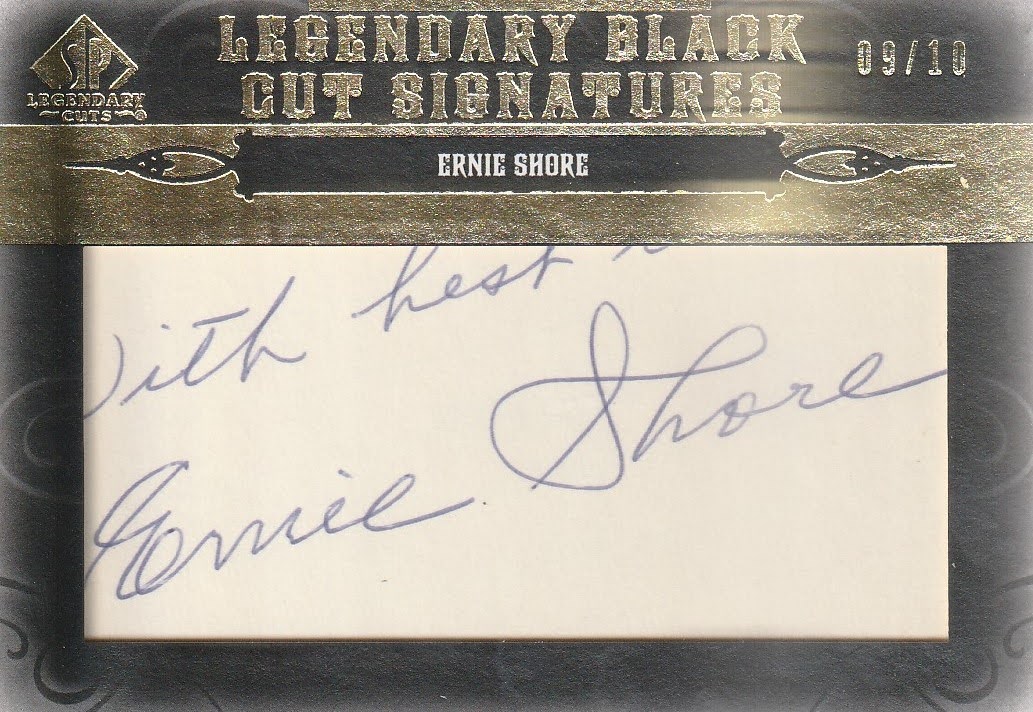 SP
LEGENDARY
CUTS
LEGENDARY BLACK
CUT SIGNATURES
09/10
ERNIE SHORE
With best
Ernie Shore